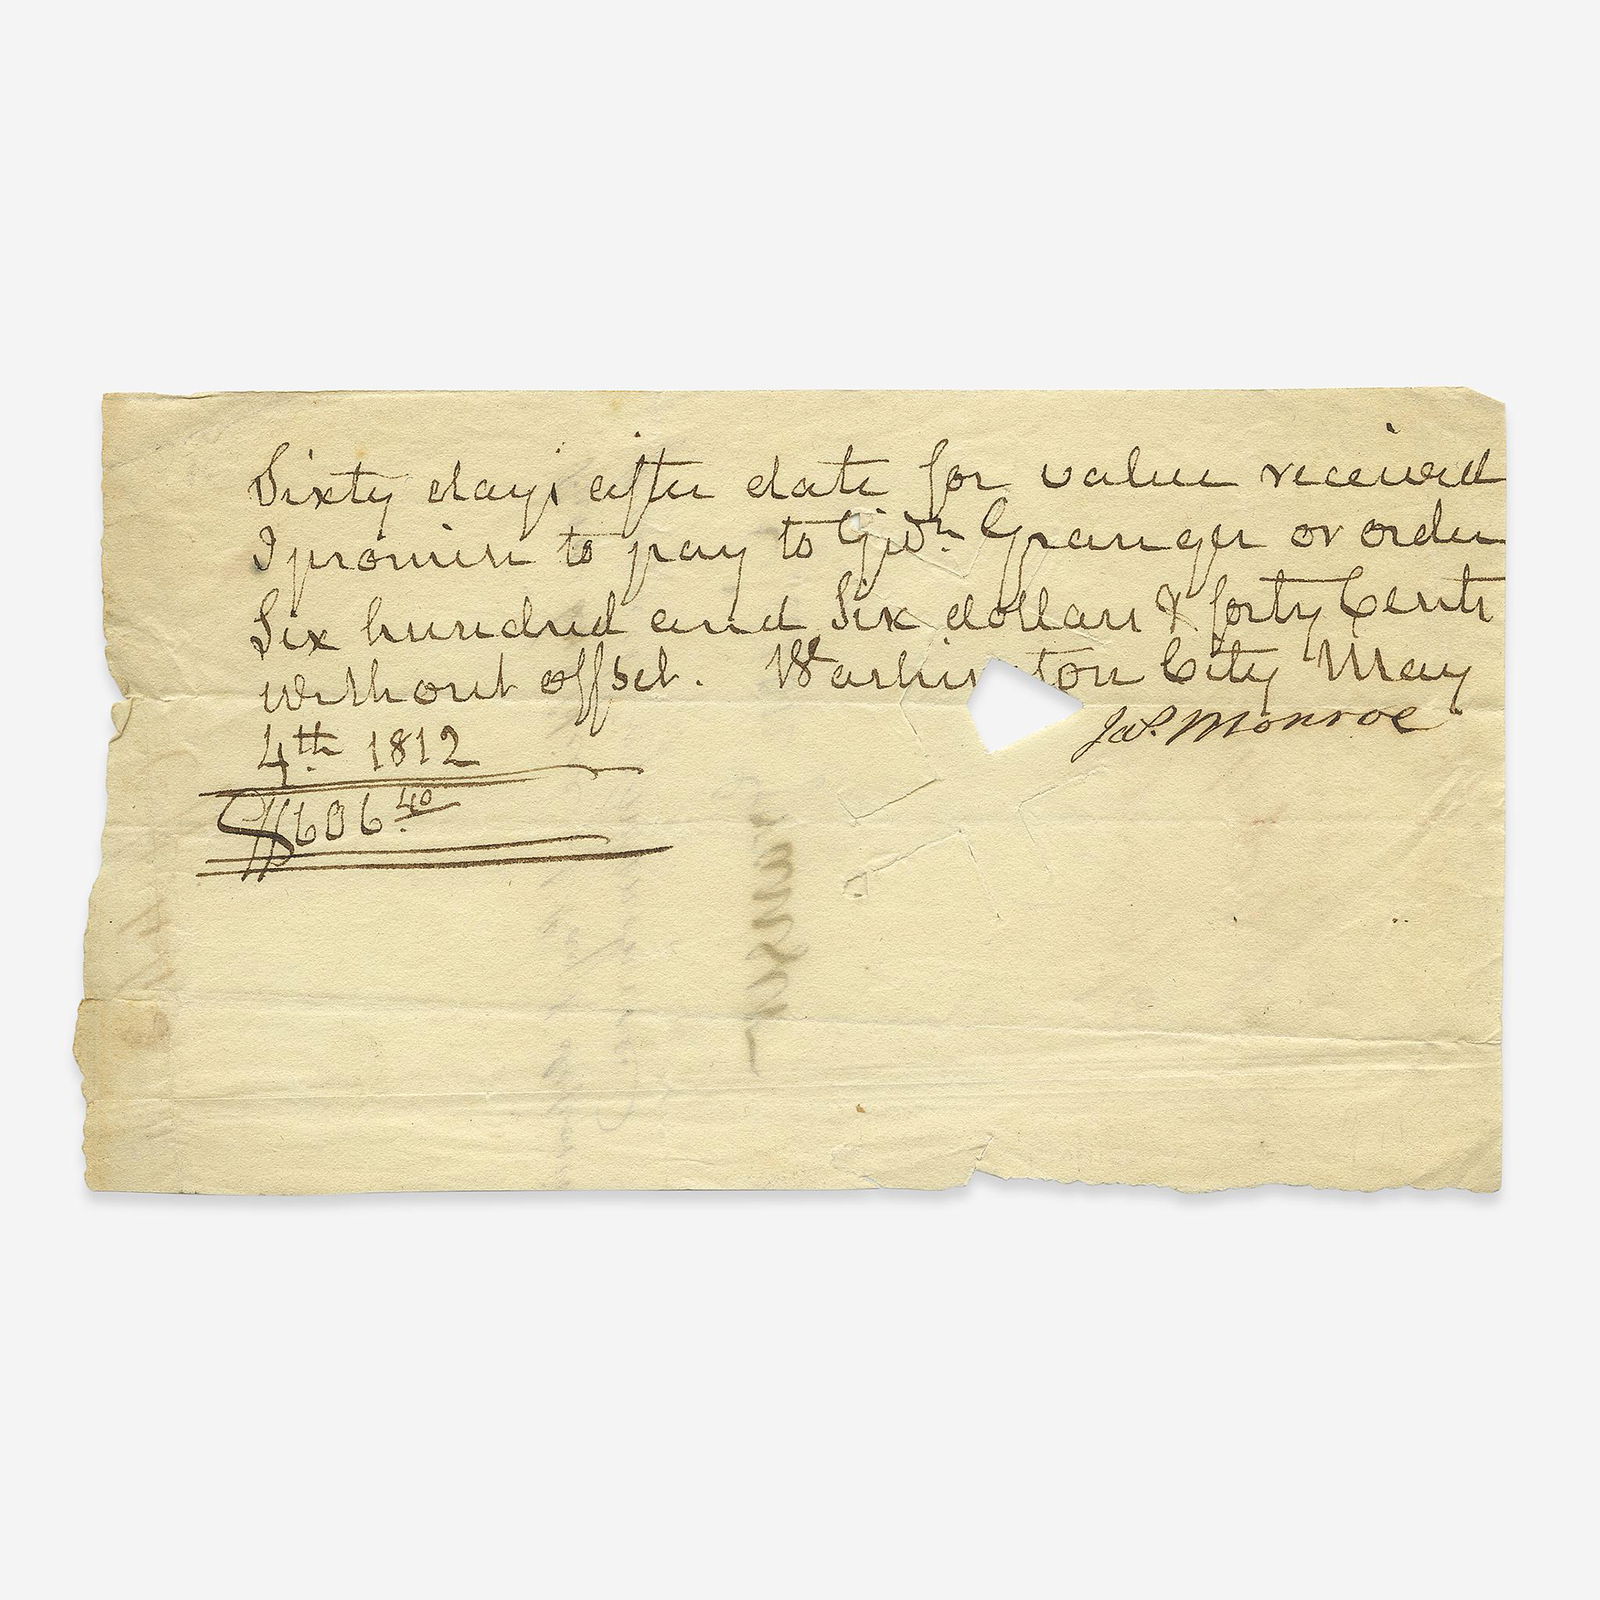 Sixty days after date for value received
I promise to pay to Gidn. Granger or order
Six hundred and Six dollars & forty Cents
without offset. Washington City May
4th 1812
Jas. Monroe
$606 40